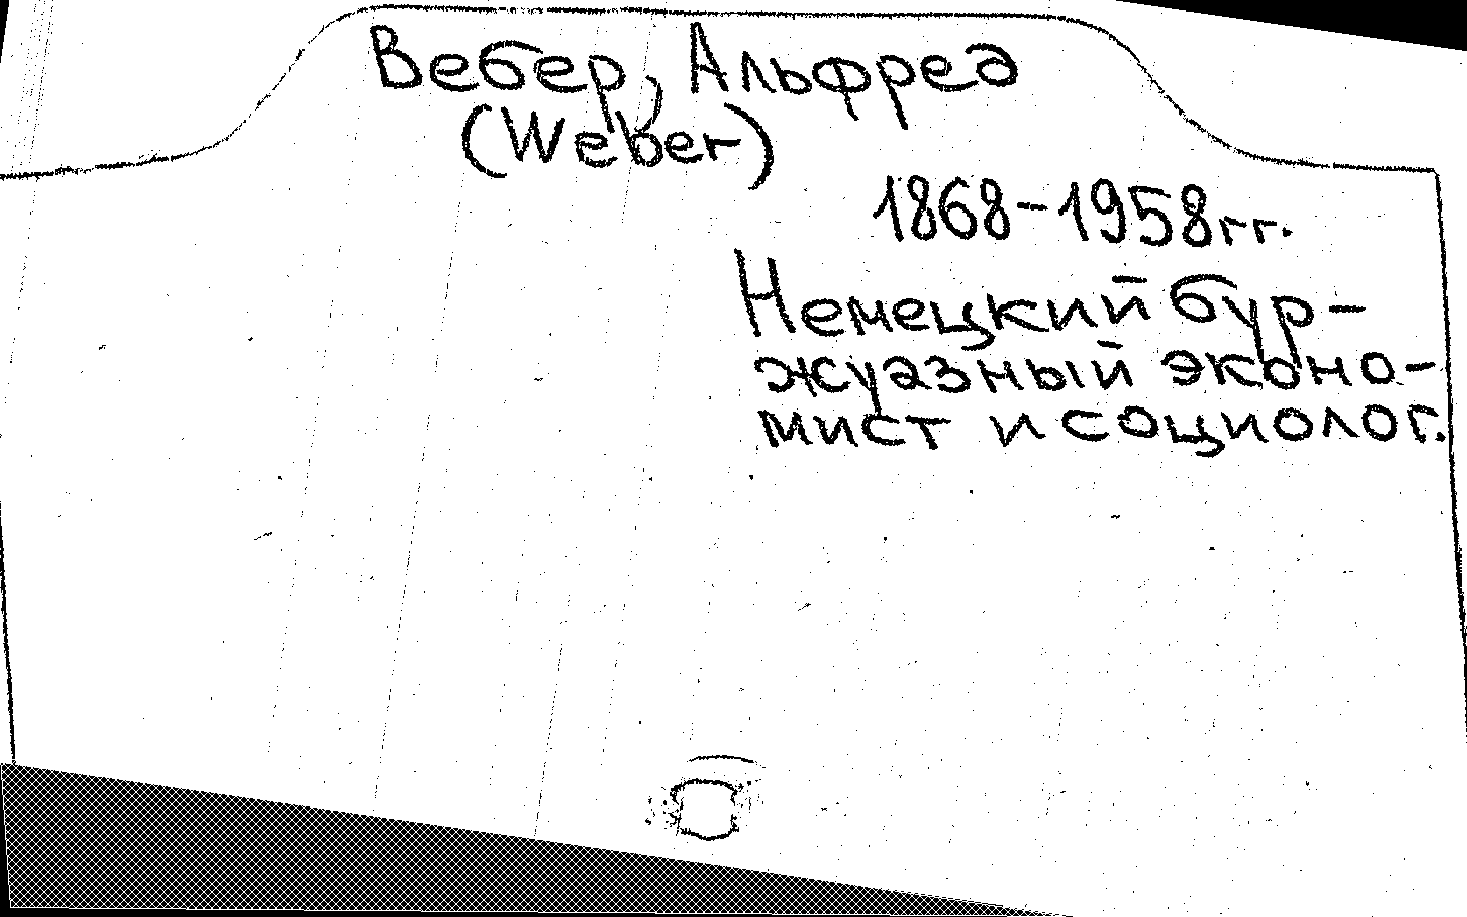 Вебер, Альфред
(Weber)
1868-1958гг.
Немецкий бур-
жуазный эконо-
мист и социолог.